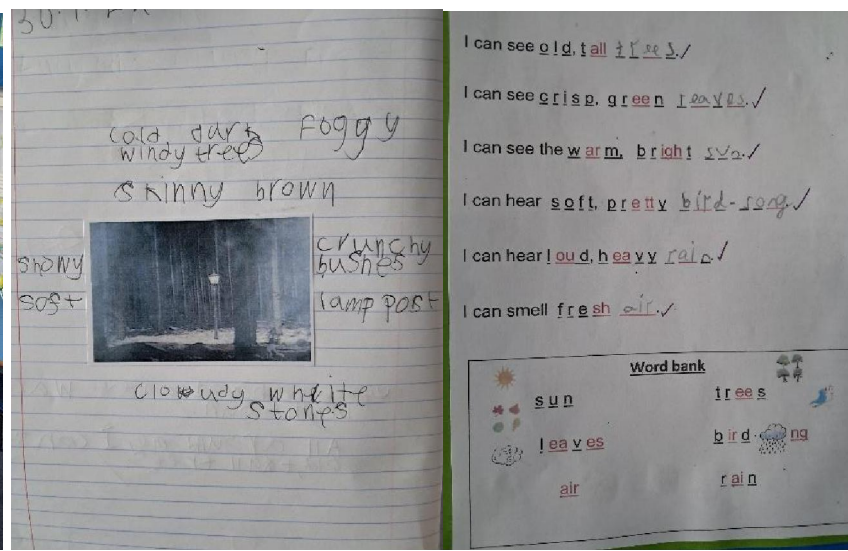 cold dark foggy
windy trees
skinny brown
snowy
soft
crunchy
bushes
lamp post
cloudy white
stones
I can see old, tall trees. ✓
I can see crisp, green leaves. ✓
I can see the warm, bright sun. ✓
I can hear soft, pretty bird-song. ✓
I can hear loud, heavy rain ✓
I can smell fresh air. ✓
Word bank
sun trees
leaves bird- ng
air rain